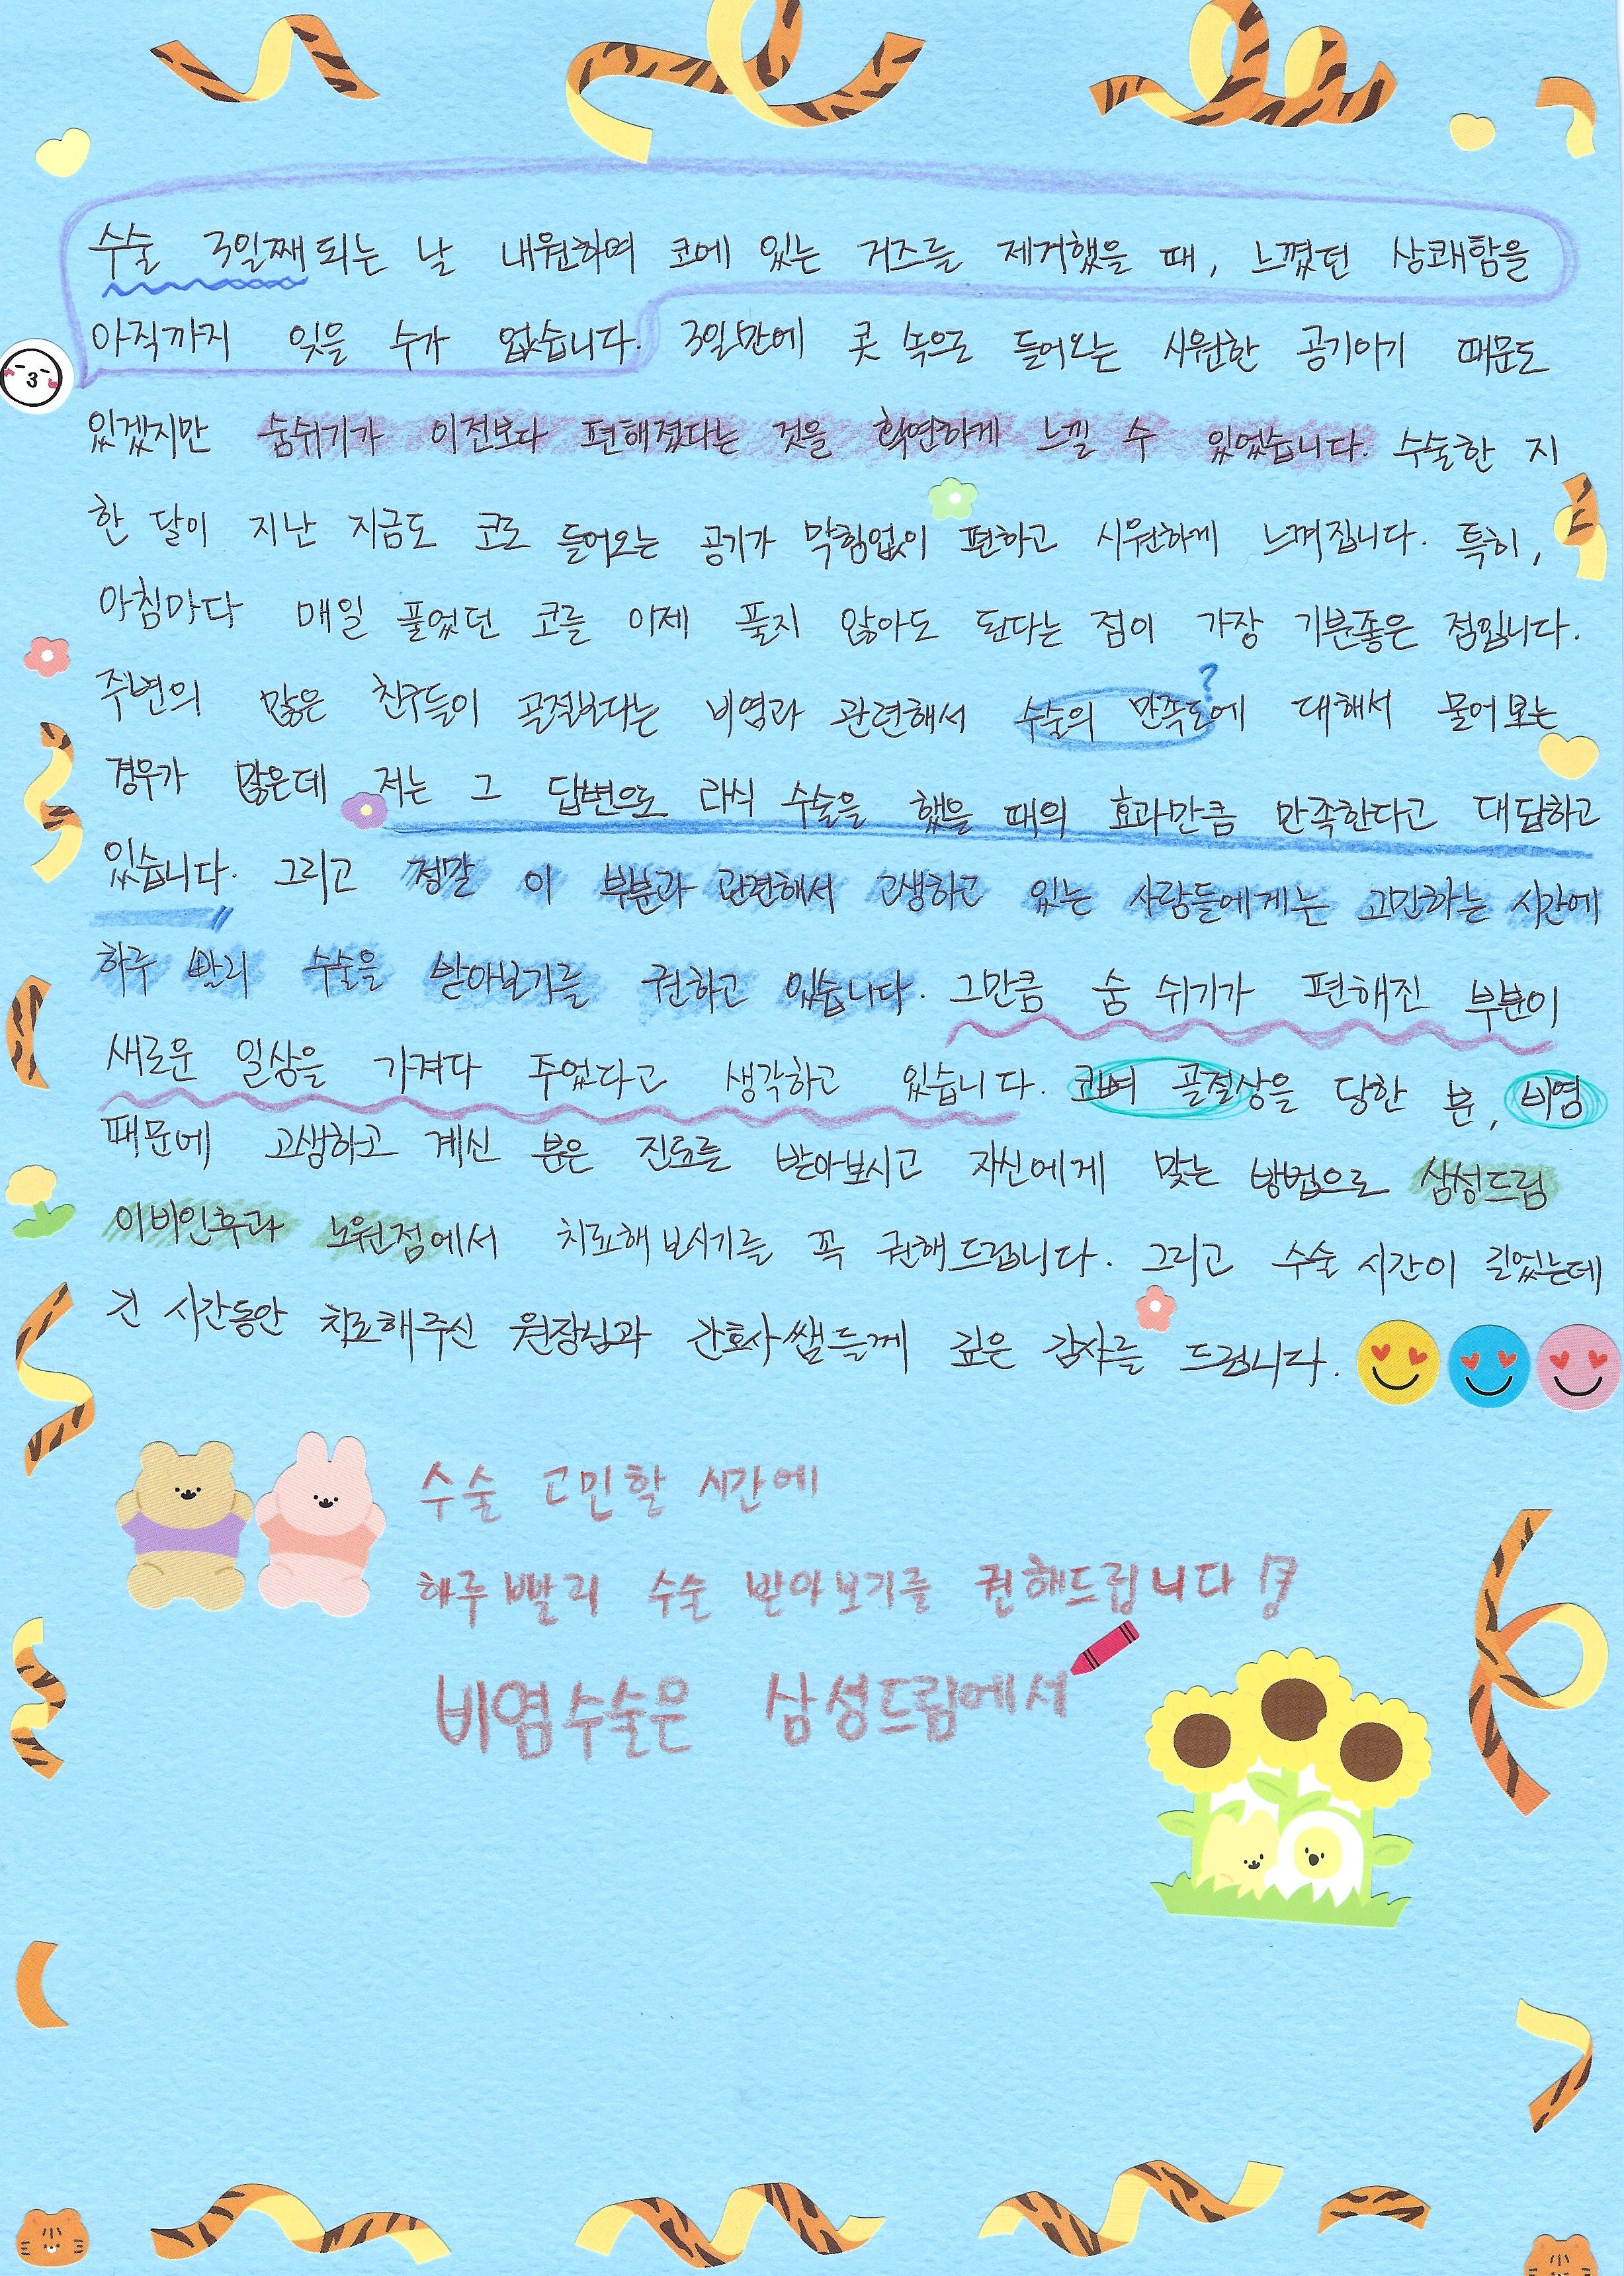 수술 3일째 되는 날 내원하며 코에 있는 거즈를 제거했을 때, 느꼈던 상쾌함을
아직까지 잊을 수가 없습니다. 3일만에 콧 속으로 들어오는 시원한 공기이기 때문도
있겠지만 숨쉬기가 이전보다 편해졌다는 것을 확연하게 느낄 수 있었습니다. 수술한 지
한 달이 지난 지금도 코로 들어오는 공기가 막힘없이 편하고 시원하게 느껴집니다. 특히,
아침마다 매일 풀었던 코를 이제 풀지 않아도 된다는 점이 가장 기분좋은 점입니다.
주변의 많은 친구들이 골절보다는 비염과 관련해서 수술의 만족도에 대해서 물어보는
?
경우가 많은데 저는 그 답변으로 라식 수술을 했을 때의 효과만큼 만족한다고 대답하고
있습니다. 그리고 정말 이 부분과 관련해서 고생하고 있는 사람들에게는 고민하는 시간에
하루 빨리 수술을 받아보기를 권하고 있습니다. 그만큼 숨 쉬기가 편해진 부분이
새로운 일상을 가져다 주었다고 생각하고 있습니다. 코뼈 골절상을 당한 분, 비염
때문에 고생하고 계신 분은 진료를 받아보시고 자신에게 맞는 방법으로 삼성드림
이비인후과 노원점에서 치료해보시기를 꼭 권해드립니다. 그리고 수술 시간이 길었는데
긴 시간동안 치료해주신 원장님과 간호사쌤들께 깊은 감사를 드립니다.
수술 고민할 시간에
하루 빨리 수술 받아보기를 권해드립니다!
비염수술은 삼성드림에서